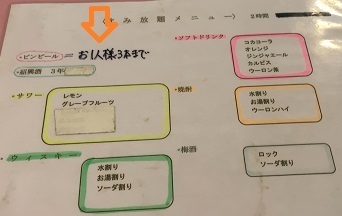 飲み放題メニュー 2時間
・ビンビール = お1人様3本まで
・紹興酒 3年
・サワー
レモン
グレープフルーツ
・ウイスキー
水割り
お湯割り
ソーダ割り
・ソフトドリンク
コカコーラ
オレンジ
ジンジャエール
カルピス
ウーロン茶
・焼酎
水割り
お湯割り
ウーロンハイ
・梅酒
ロック
ソーダ割り